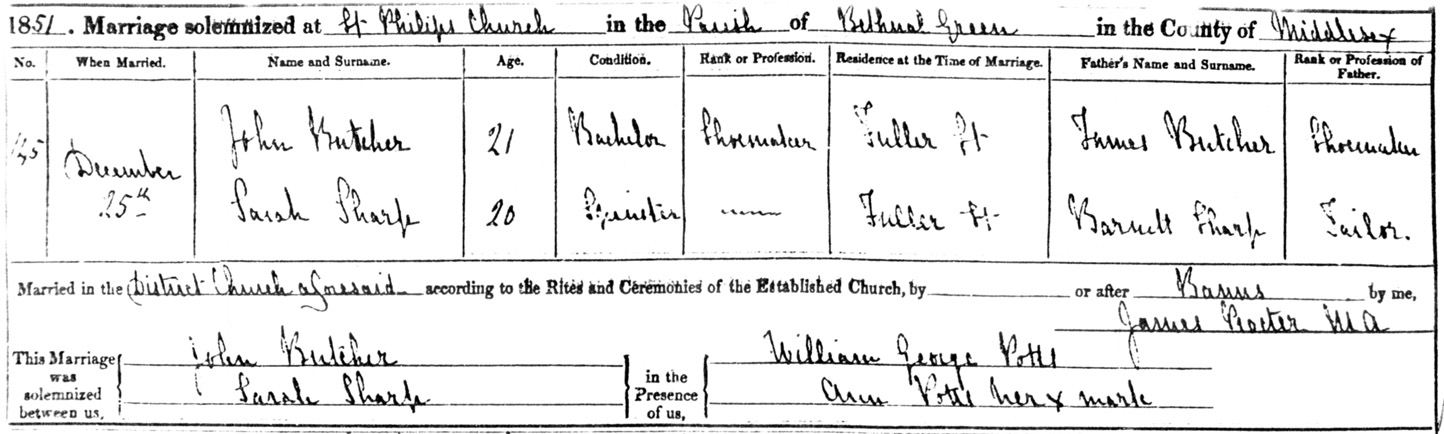 1851. Marriage solemnized at St Philips Church in the Parish of Bethnal Green in the County of Middlesex
No. When Married. Name and Surname. Age. Condition. Rank or Profession. Residence at the Time of Marriage. Father's Name and Surname. Rank or Profession of Father.
145 December 25th John Butcher 21 Bachelor Shoemaker Fuller St James Butcher Shoemaker
Sarah Sharp 20 Spinster Fuller St Barnett Sharp Tailor.
Married in the District Church aforesaid according to the Rites and Ceremonies of the Established Church, by or after Banns by me,
James Procter MA
This Marriage was solemnized between us, John Butcher in the Presence of us, William George Potts
Sarah Sharp Ann Potts her x mark